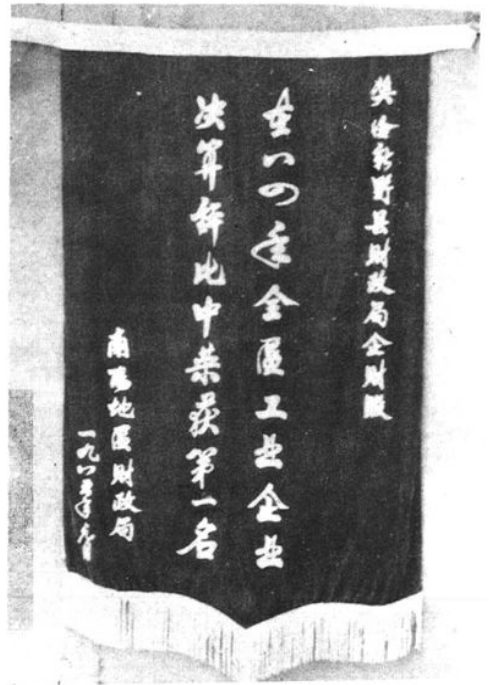 奖给新野县财政局企财股
在八四年全区工业企业
决算评比中荣获第一名
南阳地区财政局
一九八五年元月